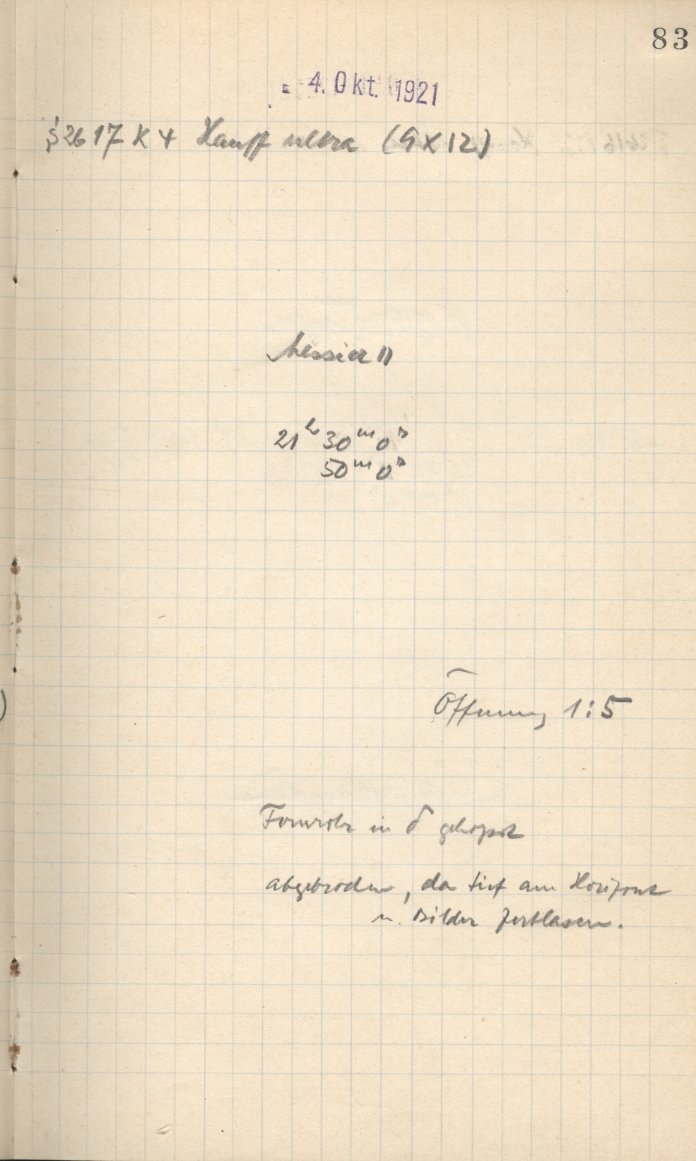 83
4. Okt. 1921
§ 2617 K 4 Hauff ultra (9 X 12)
Messier 11
21h 30m 0s
50m 0s
Öffnung 1:5
Fernrohr in δ
abgebrochen, da tief am Horizont
u. Bilder zerblasen.
)